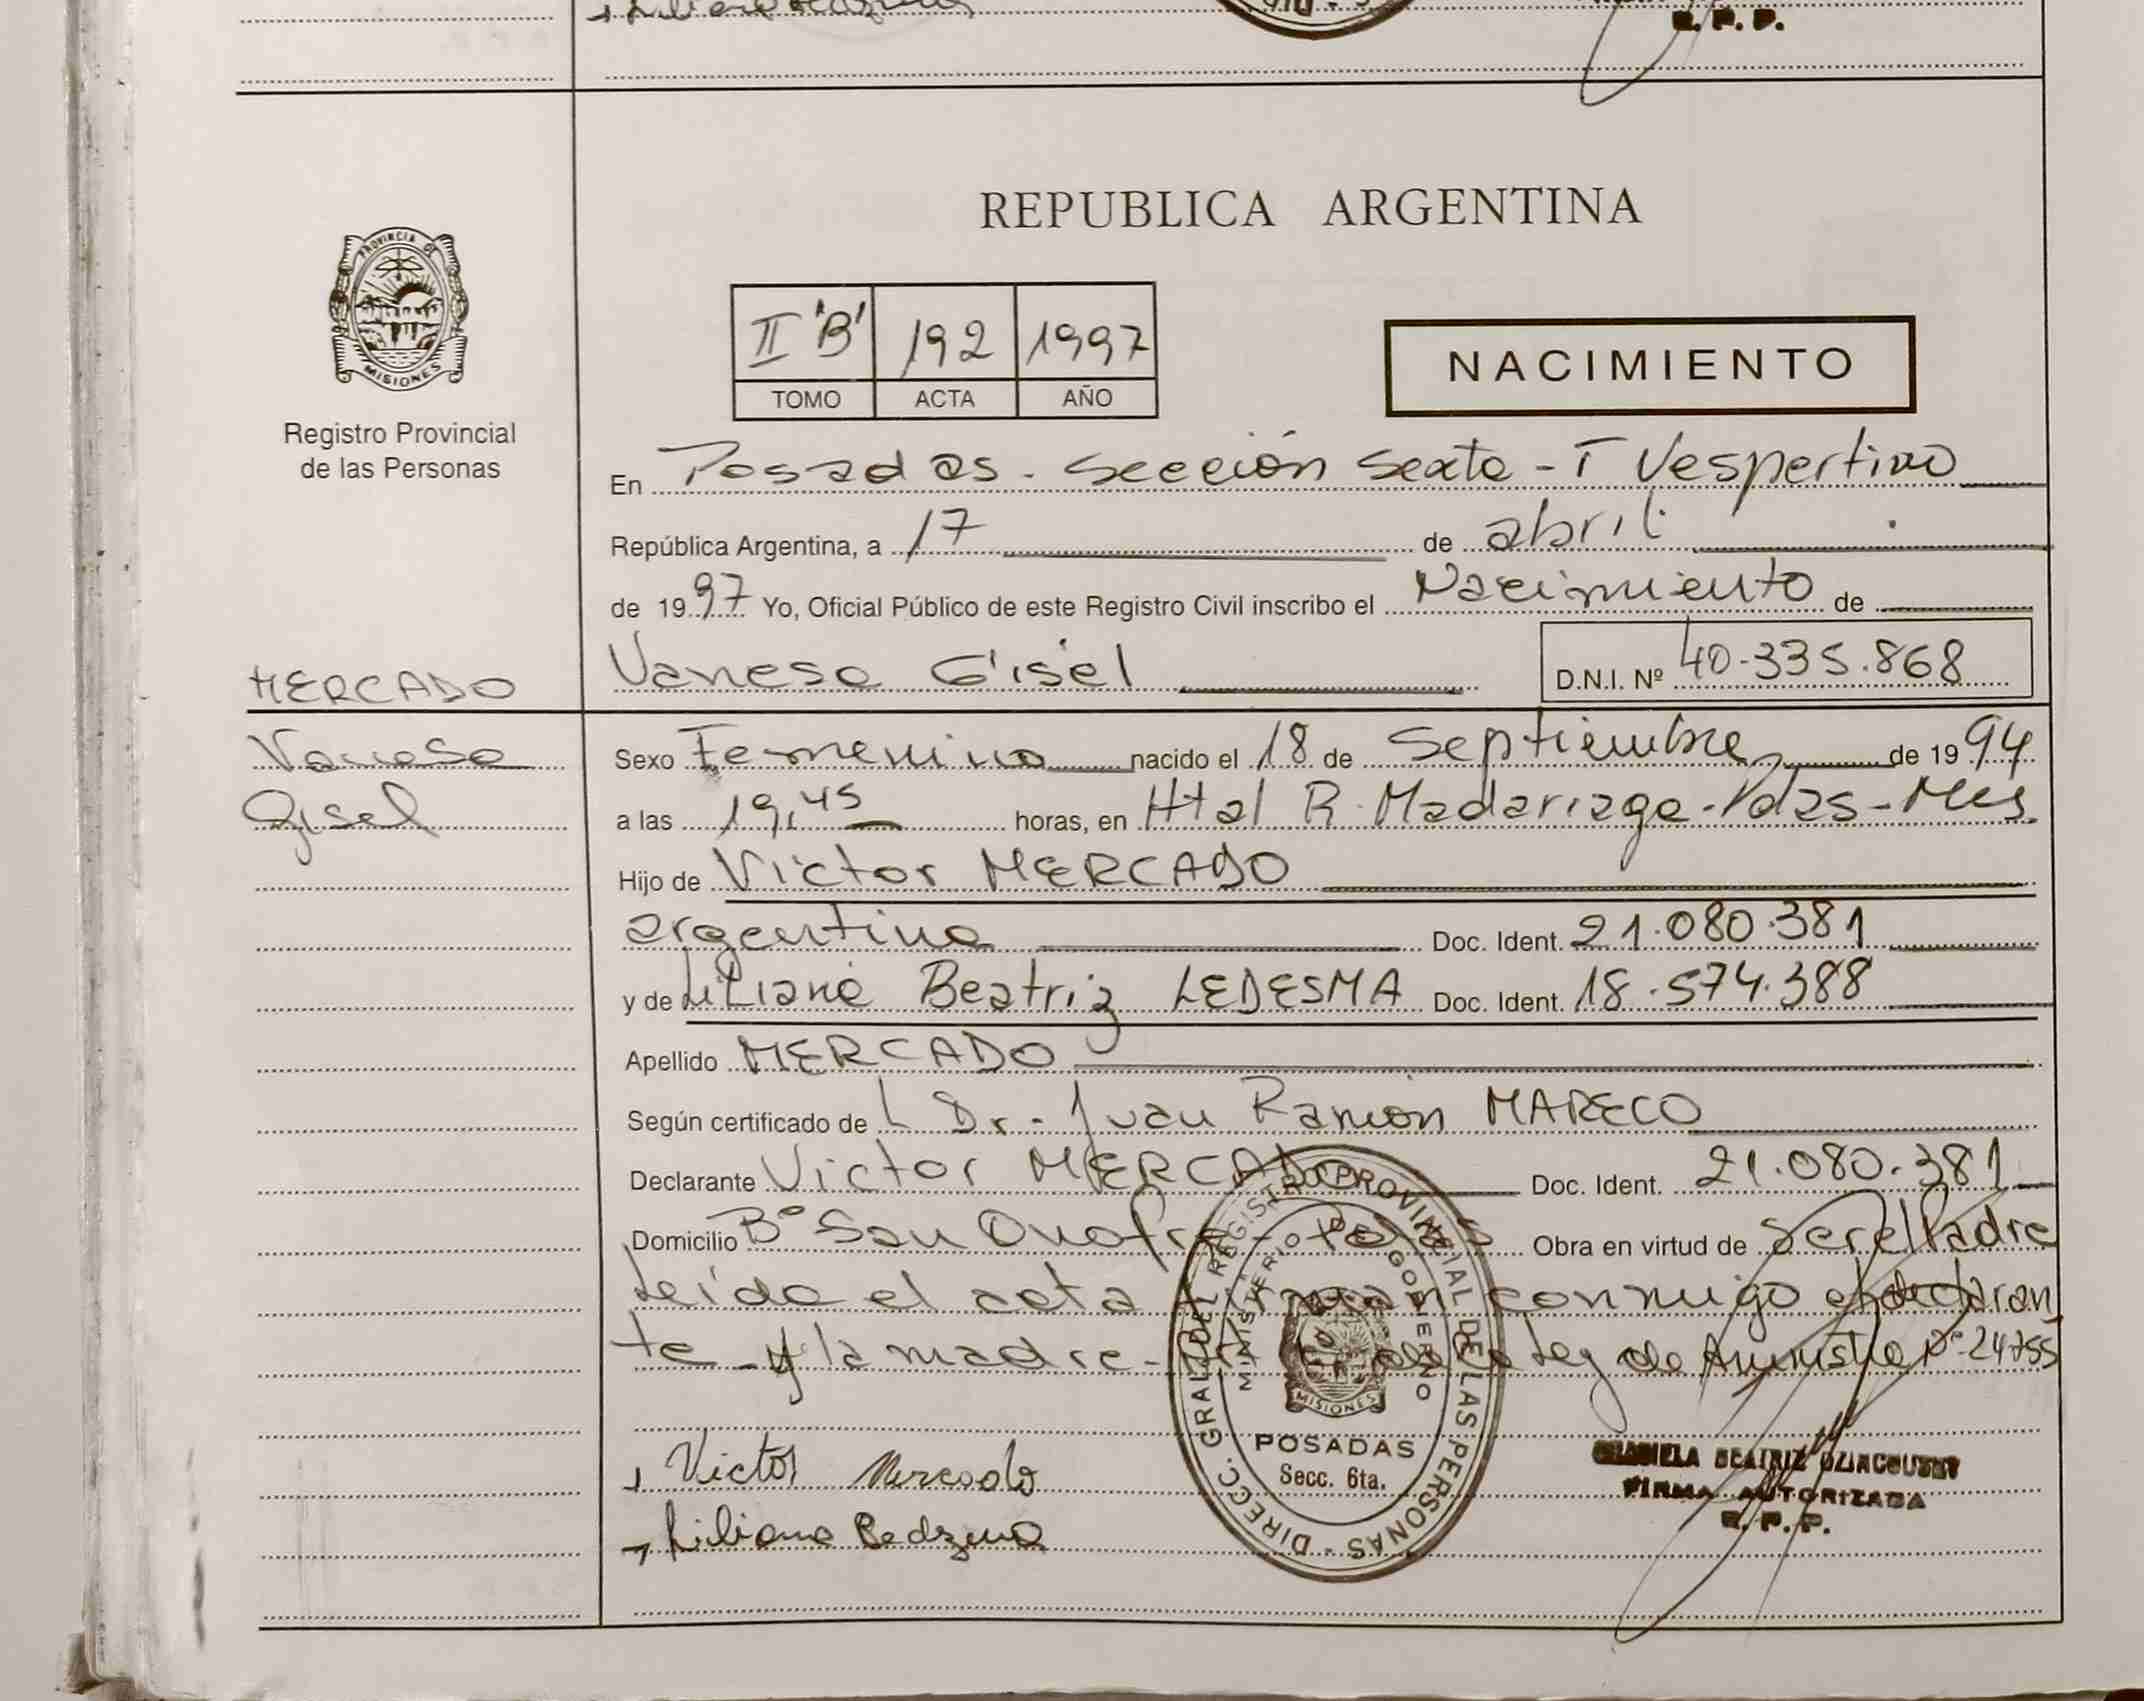 R. P. P.
REPUBLICA ARGENTINA
PROVINCIA DE
MISIONES
Registro Provincial
de las Personas
II "B" 192 1997
TOMO ACTA AÑO
NACIMIENTO
En Posadas - Sección Sexta - T Vespertino
República Argentina, a 17 de abril
de 1997 Yo, Oficial Público de este Registro Civil inscribo el Nacimiento de
MERCADO
Vanesa Gisel D.N.I. Nº 40.335.868
Vanesa
Gisel
Sexo Femenino nacido el 18 de Septiembre de 1994
a las 19,45 horas, en Htal R. Madariaga - Pdas - Mes.
Hijo de Victor MERCADO
argentina Doc. Ident. 21.080.381
y de Liliana Beatriz LEDESMA Doc. Ident. 18.574.388
Apellido MERCADO
Según certificado de L Dr. Juan Ramon MARECO
Declarante Victor MERCADO Doc. Ident. 21.080.381
Domicilio Bº San Onofre - Pdas Obra en virtud de Ser el Padre
Leída el acta firman conmigo el declaran
te y la madre - Ley de Amnistia Nº 24755
DIRECC. GRAL. DEL REGISTRO PROVINCIAL DE LAS PERSONAS
MINISTERIO DE GOBIERNO
MISIONES
POSADAS
Secc. 6ta.
Victor Mercado
Liliana
BEATRIZ
FIRMA AUTORIZADA
R. P. P.